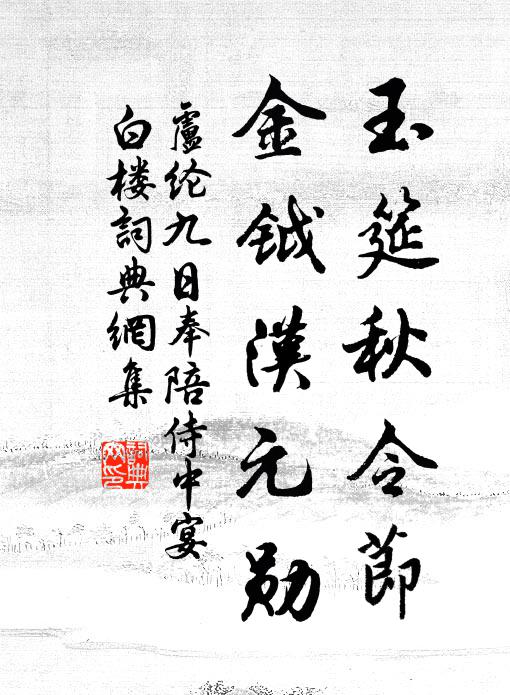 玉筵秋令節
金钺漢元勋
盧纶九日奉陪侍中宴
白楼詞典網集
詞典网印